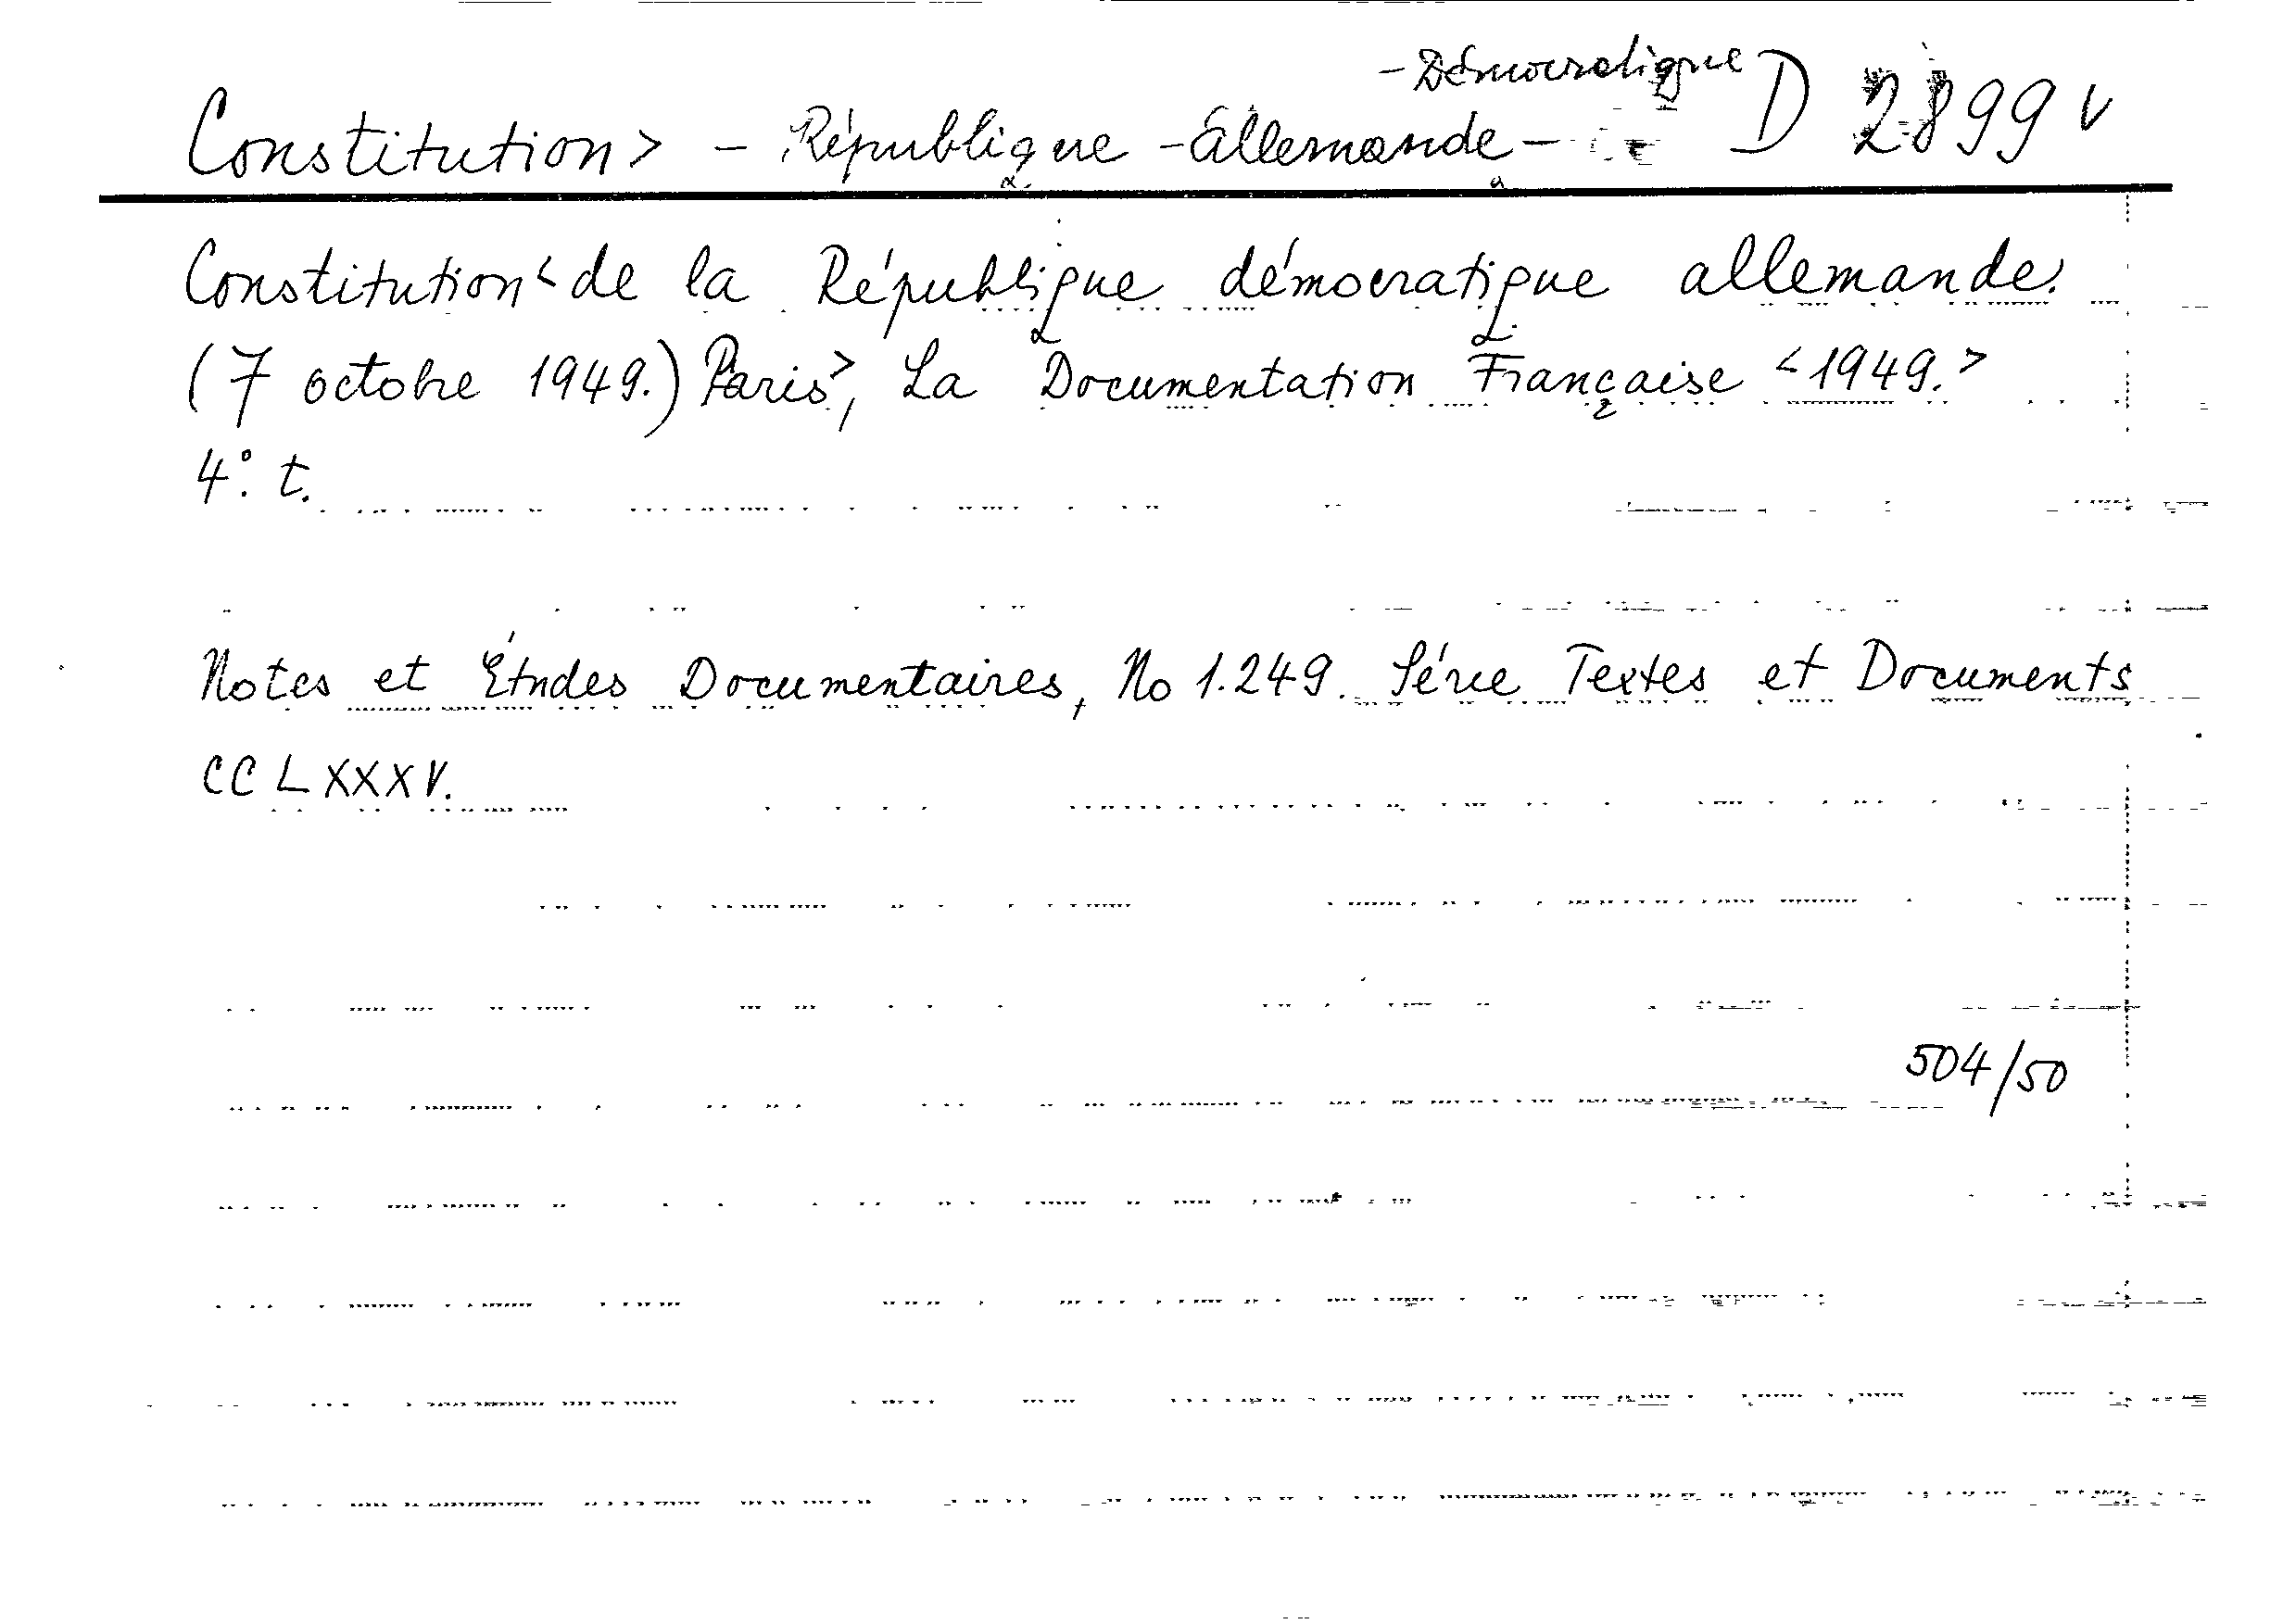 - Démocratique
Constitution> - République - Allemande - D 2899 v
Constitution< de la République démocratique allemande.
(7 octobre 1949.) Paris>, La Documentation Française <1949.>
4°. t.
Notes et Études Documentaires, No 1.249. Série Textes et Documents
CCLXXXV.
504/50